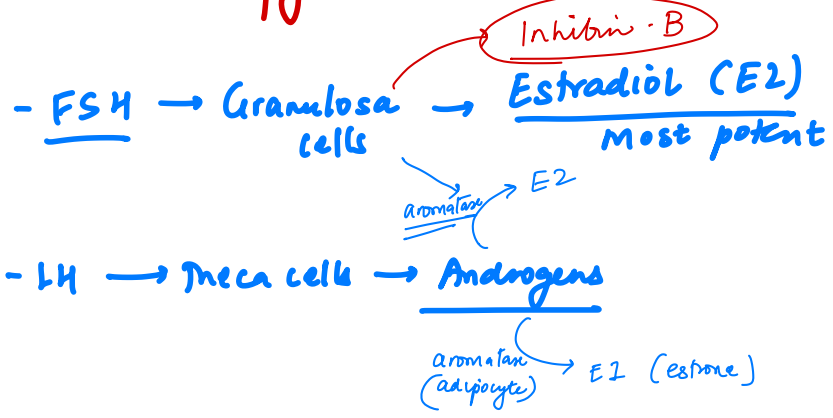 Inhibin - B
- FSH → Granulosa cells → Estradiol (E2)
Most potent
aromatase → E2
- LH → Theca cells → Androgens
aromatase (adipocyte) → E1 (estrone)